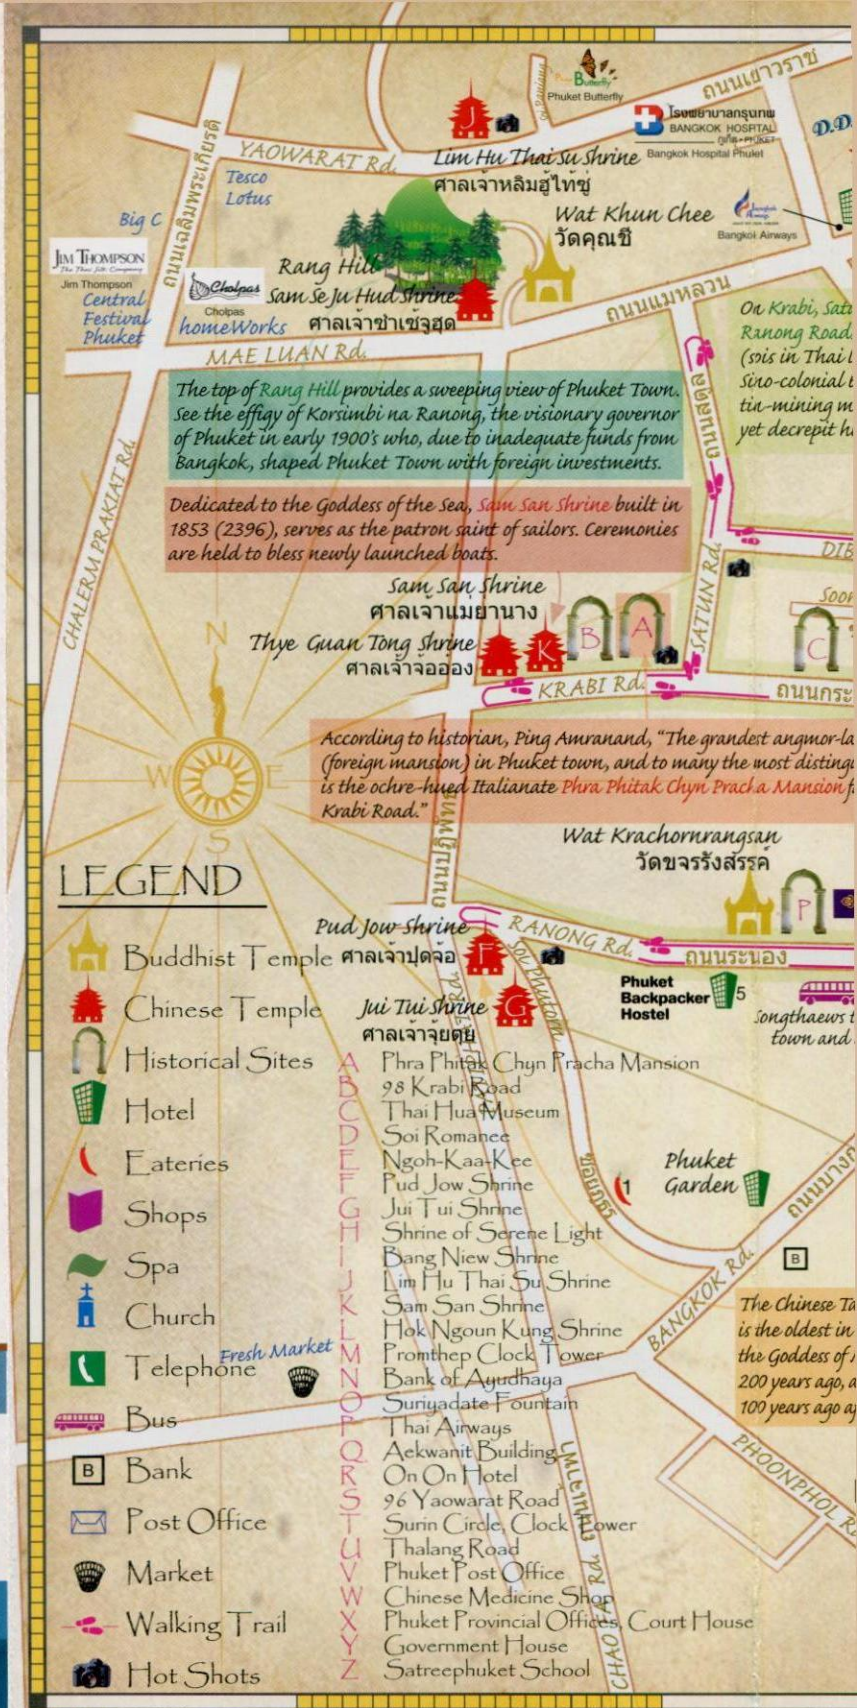 ถนนเยาวราช
Butterfly
Phuket Butterfly
J
โรงพยาบาลกรุงเทพ
BANGKOK HOSPITAL
ภูเก็ต • PHUKET
Bangkok Hospital Phulet
D.D.
ถนนเฉลิมพระเกียรติ
YAOWARAT Rd.
Lim Hu Thai Su Shrine
ศาลเจ้าหลิมฮู้ไท้ซู่
Tesco
Lotus
Big C
Wat Khun Chee
วัดคุณชี
Bangkok Airways
JIM THOMPSON
The Thai Silk Company
Jim Thompson
Central
Festival
Phuket
Cholpas
Cholpas
homeWorks
Rang Hill
Sam Se Ju Hud Shrine
ศาลเจ้าซำเซ้จูฮุด
ถนนแม่หลวน
MAE LUAN Rd.
On Krabi, Satu
Ranong Road
(sois in Thai l
Sino-colonial
tin-mining m
yet decrepit h
The top of Rang Hill provides a sweeping view of Phuket Town.
See the effigy of Korsimbi na Ranong, the visionary governor
of Phuket in early 1900's who, due to inadequate funds from
Bangkok, shaped Phuket Town with foreign investments.
ถนนสตูล
Dedicated to the Goddess of the Sea, Sam San Shrine built in
1853 (2396), serves as the patron saint of sailors. Ceremonies
are held to bless newly launched boats.
CHALERM PRAKIAT Rd.
DIB
SATUN Rd.
Soon
Sam San Shrine
ศาลเจ้าแม่ย่านาง
Thye Guan Tong Shrine
ศาลเจ้าจ้อออ๋อง
K
B
A
C
KRABI Rd.
ถนนกระ
N
W
E
S
According to historian, Ping Amranand, “The grandest angmor-la
(foreign mansion) in Phuket town, and to many the most distingu
is the ochre-hued Italianate Phra Phitak Chyn Pracha Mansion f
Krabi Road.”
ถนนปฏิพัทธ์
Wat Krachornrangsan
วัดขจรรังสรรค์
P
LEGEND
Pud Jow Shrine
ศาลเจ้าปุดจ้อ
F
RANONG Rd.
ถนนระนอง
Soi Phutorn
Jui Tui Shrine
ศาลเจ้าจุ้ยตุ่ย
G
Phuket
Backpacker
Hostel
5
Songthaews t
town and
Buddhist Temple
Chinese Temple
Historical Sites
Hotel
Eateries
Shops
Spa
Church
Telephone
Fresh Market
Bus
B
Bank
Post Office
Market
Walking Trail
Hot Shots
A Phra Phitak Chyn Pracha Mansion
B 98 Krabi Road
C Thai Hua Museum
D Soi Romanee
E Ngoh-Kaa-Kee
F Pud Jow Shrine
G Jui Tui Shrine
H Shrine of Serene Light
I Bang Niew Shrine
J Lim Hu Thai Su Shrine
K Sam San Shrine
L Hok Ngoun Kung Shrine
M Promthep Clock Tower
N Bank of Ayudhaya
O Suriyadate Fountain
P Thai Airways
Q Aekwanit Building
R On On Hotel
S 96 Yaowarat Road
T Surin Circle, Clock Tower
U Thalang Road
V Phuket Post Office
W Chinese Medicine Shop
X Phuket Provincial Offices, Court House
Y Government House
Z Satreephuket School
ซอยภูธร
1
Phuket
Garden
ถนนบางก
B
BANGKOK Rd.
The Chinese Ta
is the oldest in
the Goddess of
200 years ago, a
100 years ago a
PHOONPHOL R
CHAOFA Rd.